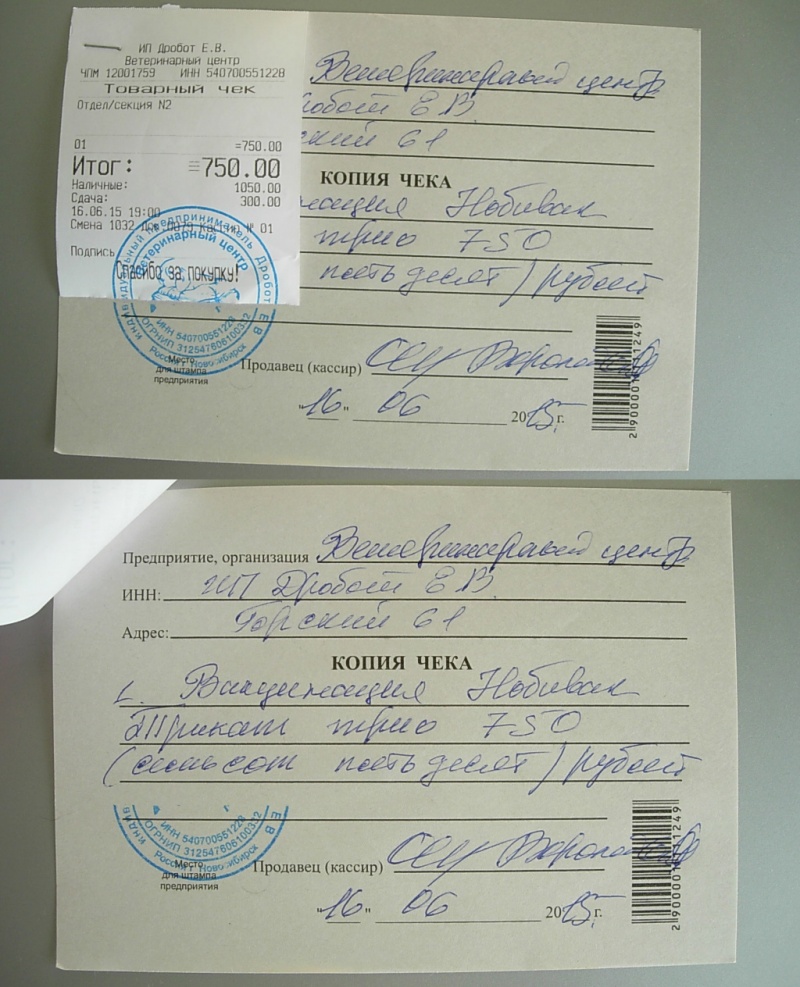 ИП Дробот Е.В.
Ветеринарный центр
ЧПМ 12001759 ИНН 540700551228
Товарный чек
Отдел/секция N2
01 =750.00
Итог: =750.00
Наличные: 1050.00
Сдача: 300.00
16.06.15 19:00
Смена 1032 Док.0079 кассир № 01
Подпись
Спасибо за покупку!
Ветеринарный центр
Дробот Е.В.
61
КОПИЯ ЧЕКА
Нобивак
трио 750
пятьдесят) рублей
Индивидуальный предприниматель Дробот Е В
Ветеринарный центр
ИНН 540700551228
ОГРНИП 312547606100332
Россия г. Новосибирск
Место
для штампа
предприятия
Продавец (кассир)
"16" 06 2015 г.
Предприятие, организация Ветеринарный центр
ИНН: ИП Дробот Е.В.
Адрес: Горский 61
КОПИЯ ЧЕКА
1. Вакцинация Нобивак
Трикат трио 750
(семьсот пятьдесят) рублей
ИНН 540700551228
ОГРНИП 312547606100332
Россия г. Новосибирск
Место
для штампа
предприятия
Продавец (кассир)
"16" 06 2015 г.